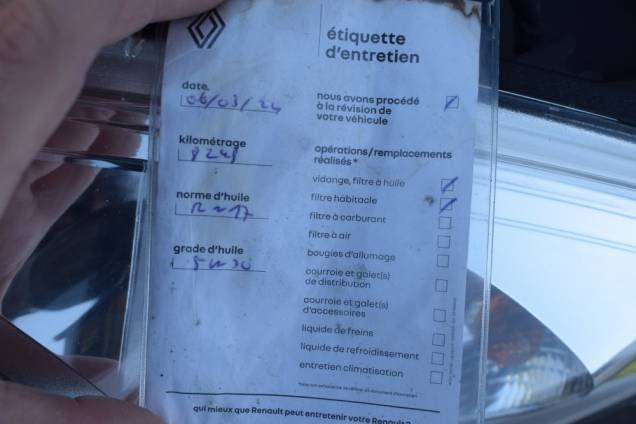 étiquette
d'entretien
date.
06/03/24
nous avons procédé
à la révision de
votre véhicule
kilométrage
opérations/remplacements
réalisés*
norme d'huile
RN17
grade d'huile
5W30
vidange, filtre à huile
filtre habitacle
filtre à carburant
filtre à air
bougies d'allumage
courroie et galet(s)
de distribution
courroie et galet(s)
d'accessoires
liquide de freins
liquide de refroidissement
entretien climatisation
qui mieux que Renault peut entretenir votre Renault ?